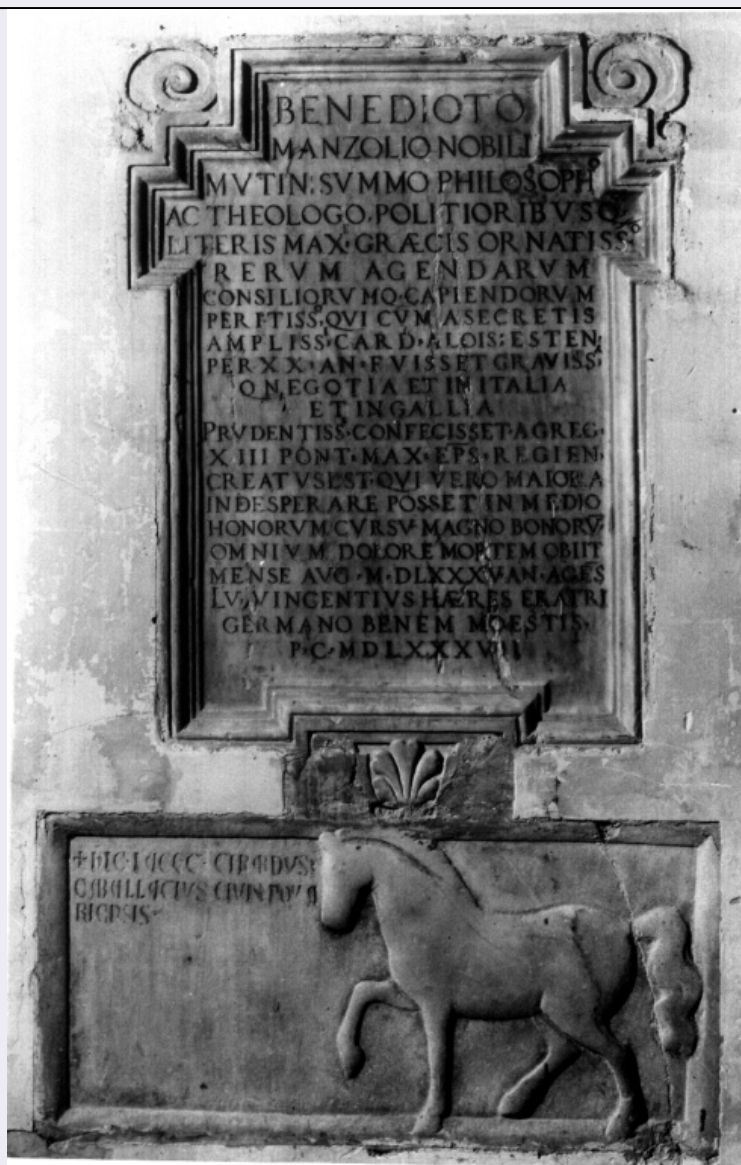 BENEDICTO
MANZOLIO NOBILI
MVTIN: SVMMO PHILOSOPHº
AC THEOLOGO·POLITIORIBVSQ
LITERIS MAX·GRÆCIS ORNATISSº
RERVM AGENDARVM
CONSILIORVMQ·CAPIENDORVM
PERITISSº QVI CVM A SECRETIS
AMPLISS·CARD·ALOIS: ESTEN:
PER XX·AN·FVISSET GRAVISS:
Q NEGOTIA ET IN ITALIA
ET IN GALLIA
PRVDENTISS·CONFECISSET·A GREG·
XIII PONT·MAX·EPS·REGIEN·
CREATVS EST·QVI VERO MAIORA
INDE SPERARE POSSET IN MEDIO
HONORVM CVRSV MAGNO BONORV
OMNIVM DOLORE MORTEM OBIIT
MENSE AVG·M·DLXXXV AN·AGES
LV· VINCENTIVS HÆRES FRATRI
GERMANO BENEM MOESTIS·
P·C·MDLXXXVII
+ HIC·IACEC·
CABALLACIUS